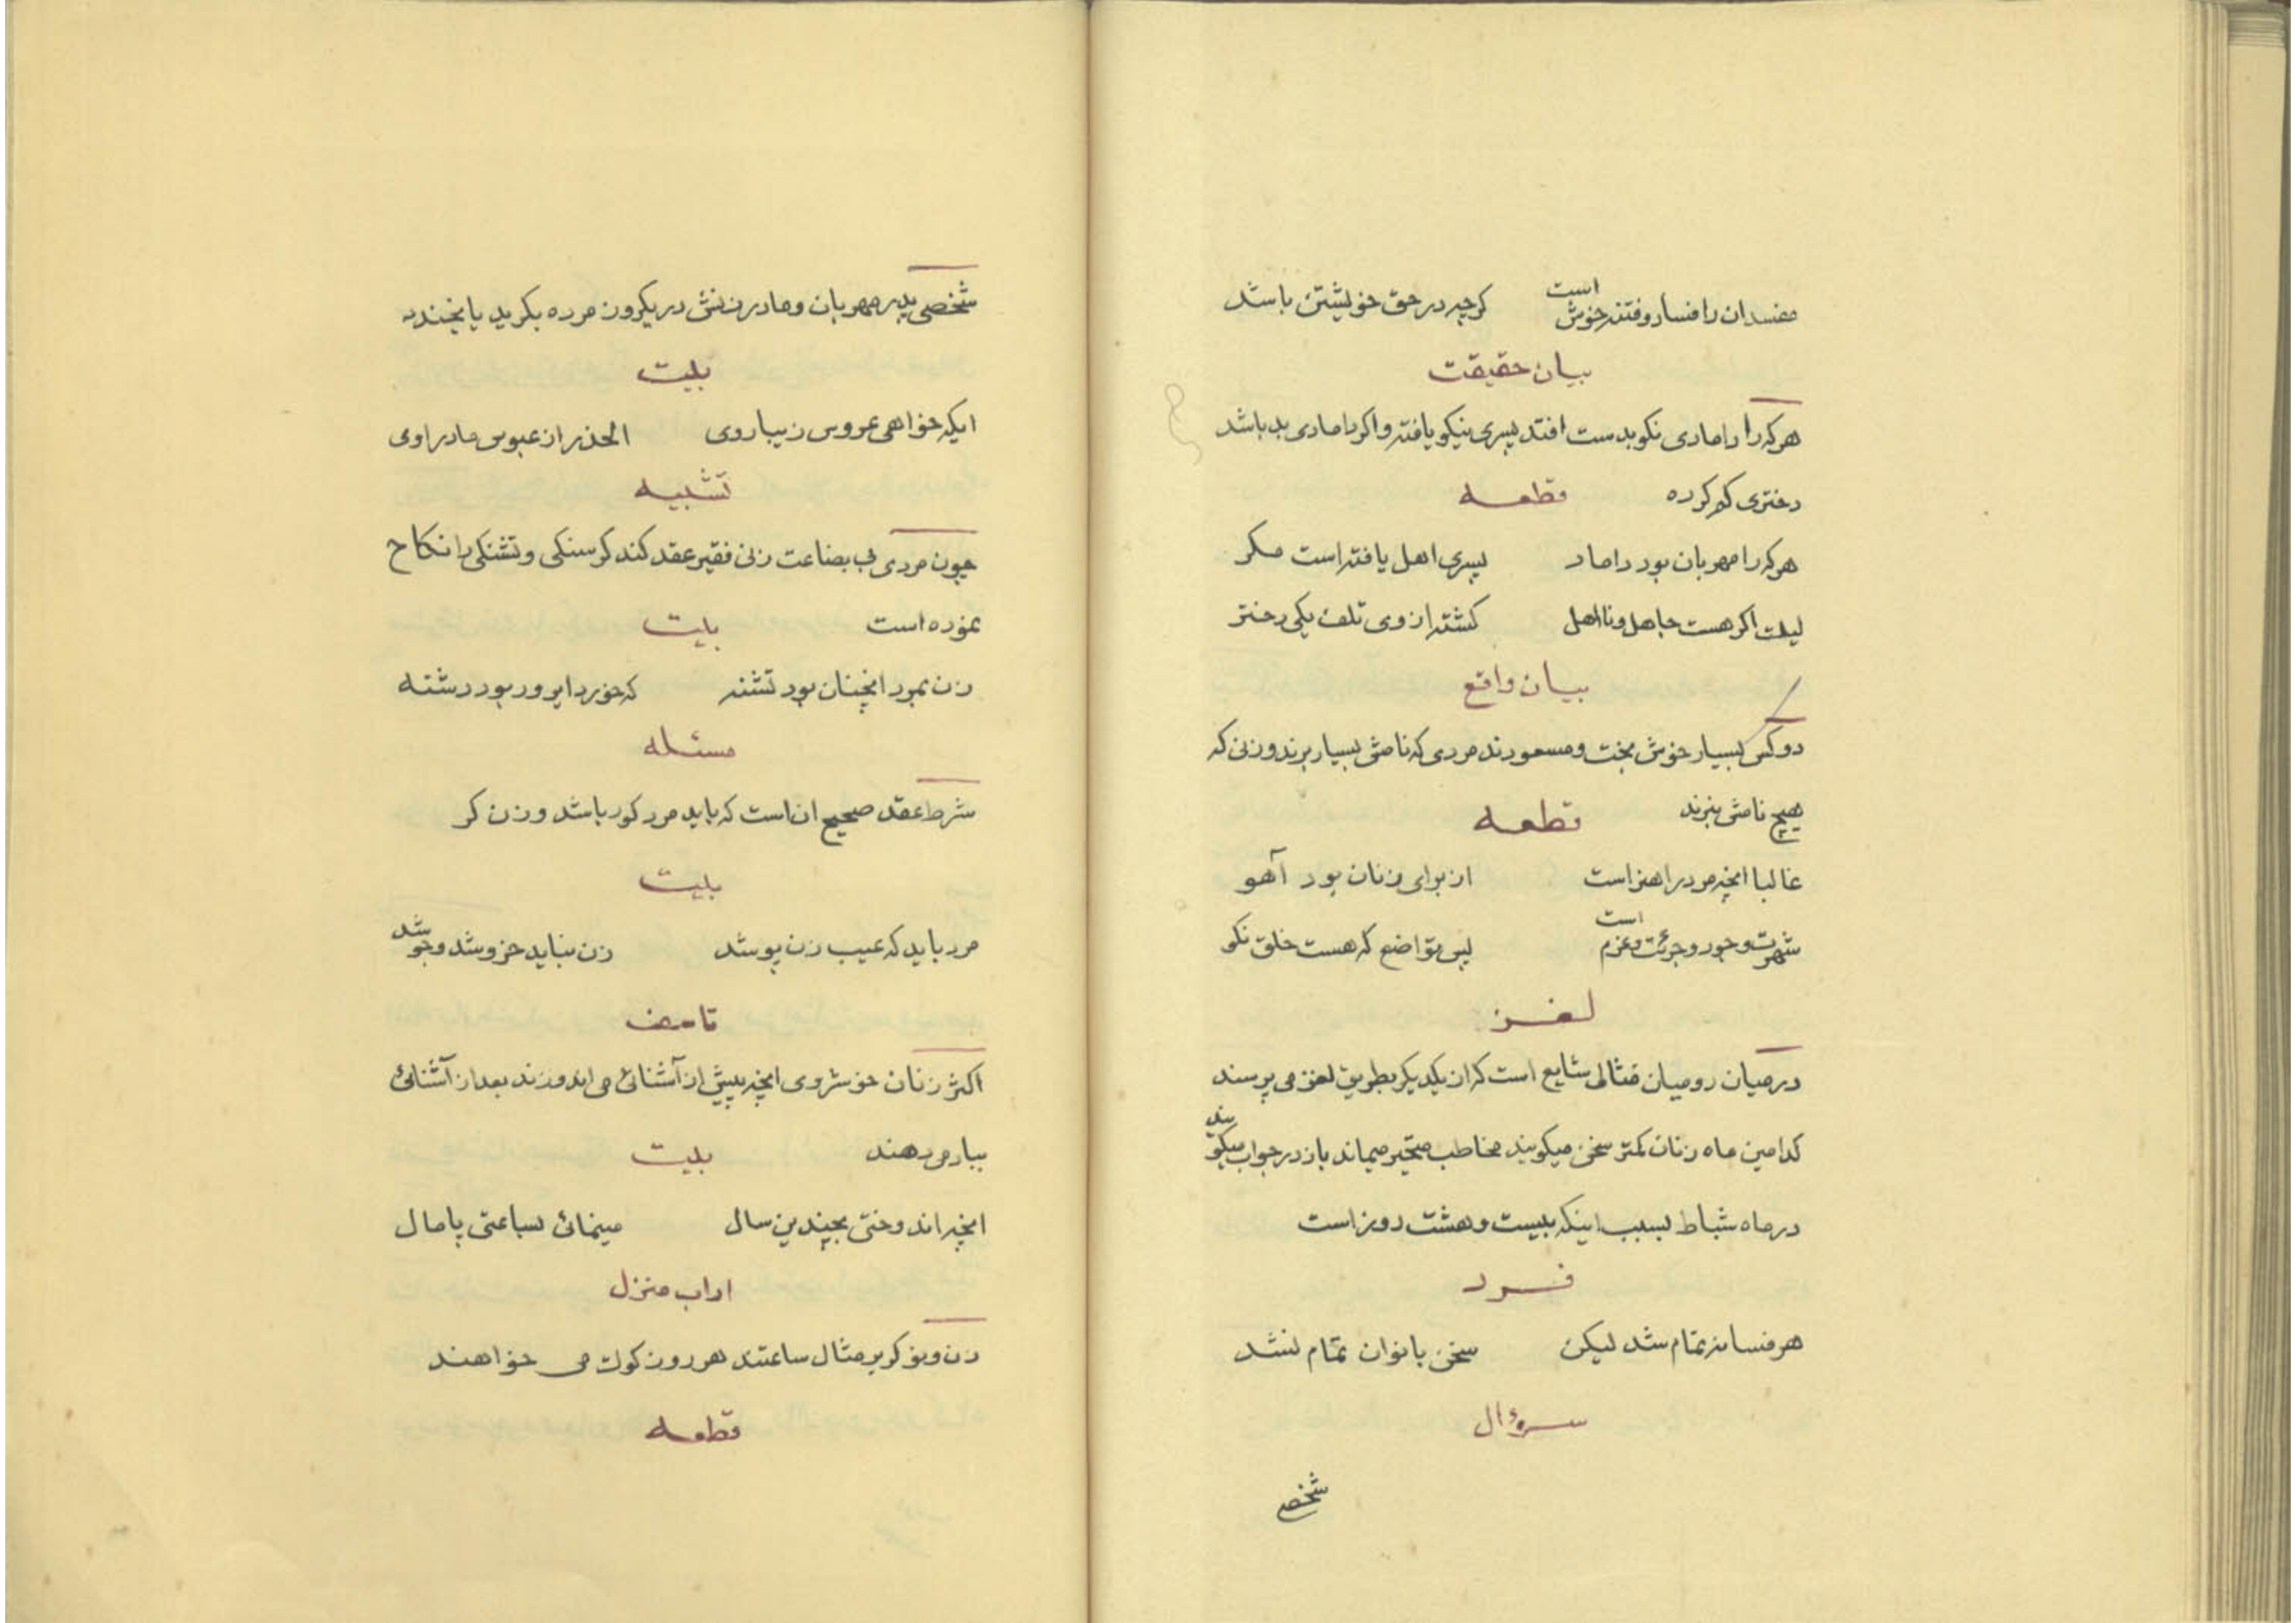 مفسدان را فساد و فتنه خوش است    کرچه در حق خویشتن باشد
بیان حقیقت
هرکه را دامادی نکو بدست افتد پسری نیکو یافته واکر دامادی بد باشد
دختری کم کرده    قطعه
هرکه را مهربان بود داماد    پسری اهل یافته است مکر
لیک اکر هست جاهل و نااهل    کشته از وی تلف یکی دختر
بیان واقع
دو کس بسیار خوش بخت و مسعودند مردی که نامش بسیار برند و زنی که
هیچ نامش نبرند    قطعه
غالبا انچه مرد را هنر است    از برای زنان بود آهو
شهرت و جود و جرئت و عزم است    پس تواضع که هست خلق نکو
لغز
در میان رومیان مثالی شایع است که از یکدیکر بطریق لغز می پرسند
کدامین ماه زنان کمتر سخن میکویند مخاطب متحیر میماند باز در جواب میکویند
در ماه شباط بسبب اینکه بیست و هشت روز است
فرد
هر فسانه تمام شد لیکن    سخن بانوان تمام نشد
سوءال
شخصی
شخصی پدر مهربان و مادر زنش در یکروز مرده بکرید یا بخندد
بیت
ایکه خواهی عروس زیباروی    الحذر از عبوس مادر اوی
تشبیه
چون مردی بی بضاعت زنی فقیر عقد کند کرسنکی و تشنکی را نکاح
نموده است    بیت
زن نبود انچنان بود تشنه    که خورد ابرو ر بود دشنه
مسئله
شرط عقد صحیح ان است که باید مرد کور باشد و زن کر
بیت
مرد باید که عیب زن پوشد    زن نباید خروشد و جوشد
تاسف
اکثر زنان خوشروی انچه پیش از آشنائی می اندوزند بعد از آشنائی
بباد می دهند    بیت
انچه اندوختی بچندین سال    مینمائی بساعتی پامال
اداب منزل
زن و نوکر بر مثال ساعتند هر روز کوک می خواهند
قطعه